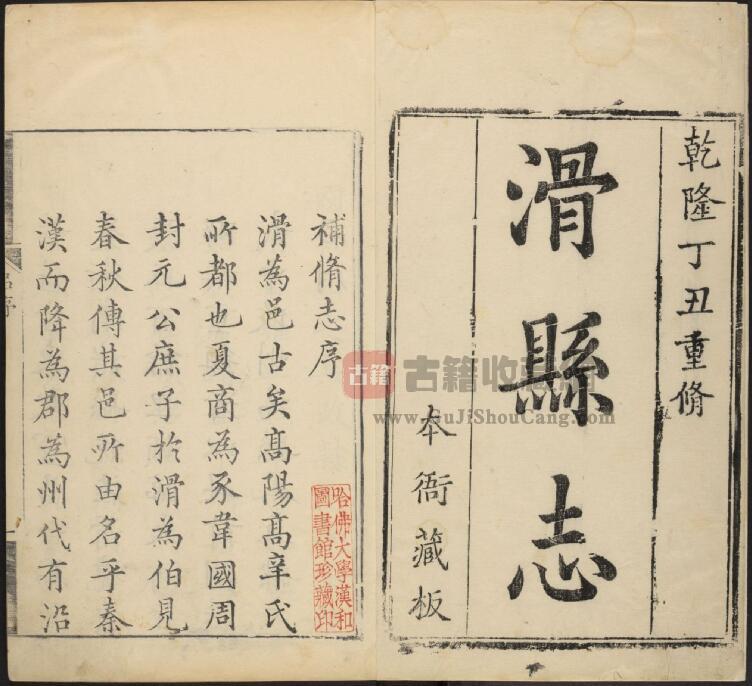 乾隆丁丑重脩
滑縣志
本衙藏板
補脩志序
滑為邑古矣高陽高辛氏
所都也夏商為豕韋國周
封元公庶子於滑為伯見
春秋傳其邑所由名乎秦
漢而降為郡為州代有沿
哈佛大學漢和
圖書館珍藏印
古籍
古籍收藏網
www.GuJiShouCang.com